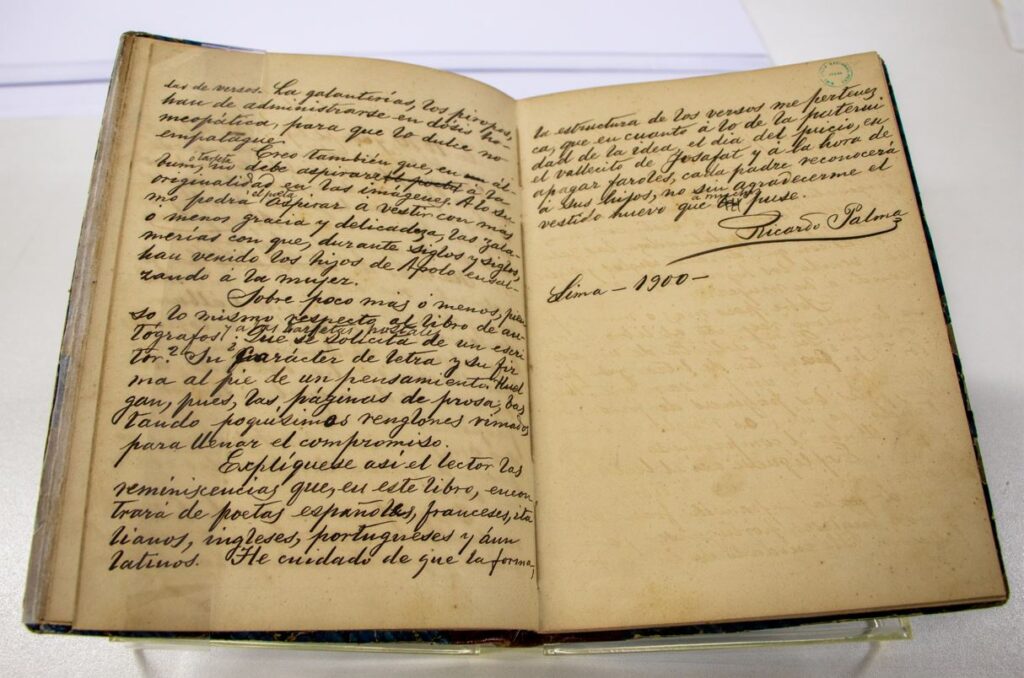 das de versos. La galanterías, los piropos,
han de administrarse en dósis ho-
meopática, para que lo dulce no
empalague.
Creo también que, en un ál-
bum, o tarjeta, no debe aspirarse el poeta á la
originalidad en las imágenes. A lo su-
mo podrá el poeta aspirar á vestir con más
o menos gracia y delicadeza, las zala-
merías con que, durante siglos y siglos,
han venido los hijos de Apolo ensal-
zando á la mujer.
Sobre poco más ó menos, pien
so lo mismo respecto al libro de au-
tógrafos y a las tarjetas postales. ¿Que se solicita de un escri
tor? Su carácter de letra y su fir
ma al pie de un pensamiento. Huel
gan, pues, las páginas de prosa, bas
tando poquísimos renglones rimados
para llenar el compromiso.
Explíquese así el lector las
reminiscencias que, en este libro, encon
trará de poetas españoles, franceses, ita
lianos, ingleses, portugueses y áun
latinos. He cuidado de que la forma,
la estructura de los versos me pertenez
ca, que en cuanto á lo de la paterni
dad de la idea, el dia del juicio, en
el vallecito de Josafat y á la hora de
apagar faroles, cada padre reconocerá
á sus hijos, no sin agradecerme el
vestido nuevo que puse.
Ricardo Palma
Lima - 1900 -